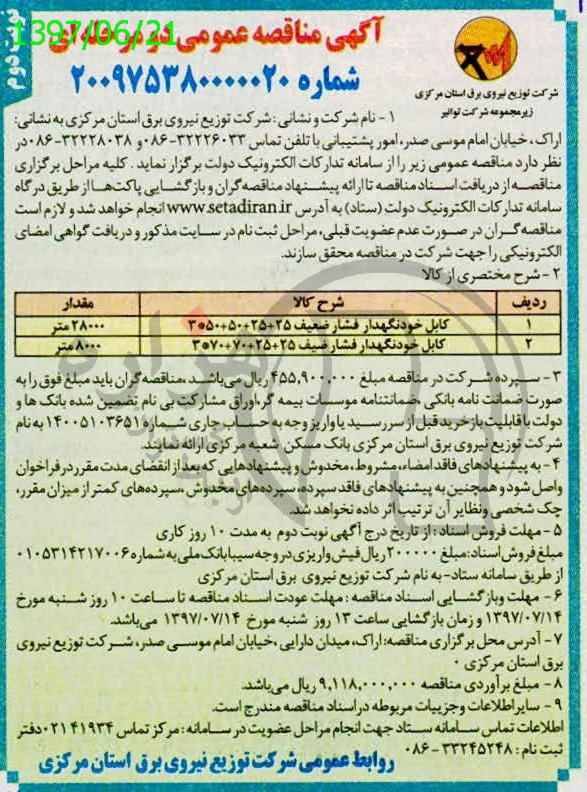 1397/06/21
نوبت دوم
آگهی مناقصه عمومی دو مرحله‌ای
شماره ۲۰۰۹۷۵۳۸۰۰۰۰۰۲۰
شرکت توزیع نیروی برق استان مرکزی
زیرمجموعه شرکت توانیر
۱ - نام شرکت و نشانی : شرکت توزیع نیروی برق استان مرکزی به نشانی:
اراک ، خیابان امام موسی صدر، امور پشتیبانی با تلفن تماس ۳۲۲۲۶۰۳۳-۰۸۶ و ۳۲۲۲۸۰۳۸-۰۸۶ در
نظر دارد مناقصه عمومی زیر را از سامانه تدارکات الکترونیک دولت برگزار نماید . کلیه مراحل برگزاری
مناقصه از دریافت اسناد مناقصه تا ارائه پیشنهاد مناقصه‌گران و بازگشایی پاکت‌ها از طریق درگاه
سامانه تدارکات الکترونیک دولت (ستاد) به آدرس www.setadiran.ir انجام خواهد شد و لازم است
مناقصه‌گران در صورت عدم عضویت قبلی، مراحل ثبت نام در سایت مذکور و دریافت گواهی امضای
الکترونیکی را جهت شرکت در مناقصه محقق سازند.
۲ - شرح مختصری از کالا
ردیف شرح کالا مقدار
۱ کابل خودنگهدار فشار ضعیف ۲۵+۲۵+۵۰+۵۰*۳ ۲۸۰۰۰ متر
۲ کابل خودنگهدار فشار ضیف ۲۵+۲۵+۷۰+۷۰*۳ ۸۰۰۰ متر
۳ - سپرده شرکت در مناقصه مبلغ ۴۵۵,۹۰۰,۰۰۰ ریال می‌باشد، مناقصه‌گران باید مبلغ فوق را به
صورت ضمانت نامه بانکی ،ضمانتنامه موسسات بیمه گر،اوراق مشارکت بی نام تضمین شده بانک ها و
دولت با قابلیت بازخرید قبل از سررسید یا واریز وجه به حساب جاری شماره ۱۴۰۰۵۱۰۳۶۵۱ به نام
شرکت توزیع نیروی برق استان مرکزی بانک مسکن شعبه مرکزی ارائه نمایند.
۴ - به پیشنهادهای فاقد امضاء، مشروط ، مخدوش و پیشنهادهایی که بعد از انقضای مدت مقرر در فراخوان
واصل شود و همچنین به پیشنهادهای فاقد سپرده، سپرده‌های مخدوش ،سپرده‌های کمتر از میزان مقرر،
چک شخصی ونظایر آن ترتیب اثر داده نخواهد شد.
۵ - مهلت فروش اسناد : از تاریخ درج آگهی نوبت دوم به مدت ۱۰ روز کاری
مبلغ فروش اسناد:مبلغ ۲۰۰۰۰۰۰ ریال فیش واریزی در وجه سیبا بانک ملی به شماره ۰۱۰۵۳۱۴۲۱۷۰۰۶
از طریق سامانه ستاد- به نام شرکت توزیع نیروی برق استان مرکزی
۶ - مهلت وبازگشایی اسناد مناقصه : مهلت عودت اسناد مناقصه تا ساعت ۱۰ روز شنبه مورخ
۱۳۹۷/۰۷/۱۴ و زمان بازگشایی ساعت ۱۳ روز شنبه مورخ ۱۳۹۷/۰۷/۱۴ می‌باشد.
۷ - آدرس محل برگزاری مناقصه: اراک، میدان دارایی ،خیابان امام موسی صدر، شرکت توزیع نیروی
برق استان مرکزی ۰
۸ - مبلغ برآوردی مناقصه ۹,۱۱۸,۰۰۰,۰۰۰ ریال می‌باشد.
۹ - سایر اطلاعات وجزییات مربوطه دراسناد مناقصه مندرج است.
اطلاعات تماس سامانه ستاد جهت انجام مراحل عضویت در سامانه : مرکز تماس ۴۱۹۳۴-۰۲۱ دفتر
ثبت نام : ۳۳۲۴۵۲۴۸-۰۸۶
روابط عمومی شرکت توزیع نیروی برق استان مرکزی